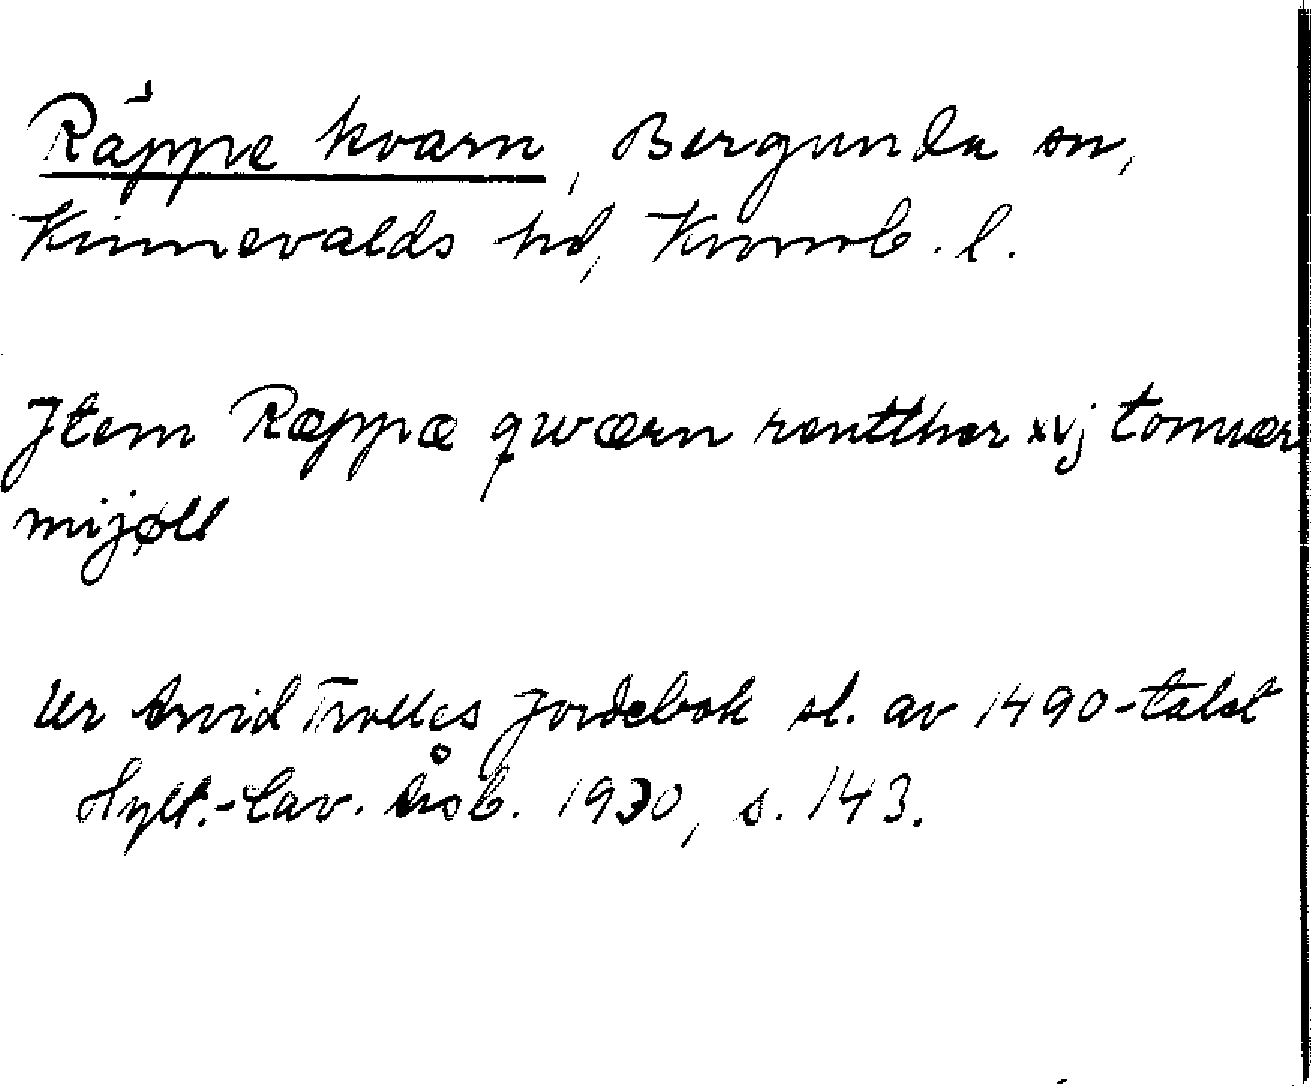 Räppe kvarn, Bergunda sn,
Kinnevalds hd, Kronob. l.
Jtem Ræppæ qwærn rentther xvj tonnær
mijøll
Ur Arvid Trolles Jordebok sl. av 1490-talet
Hylt.-Cav. Årsb. 1930, s. 143.